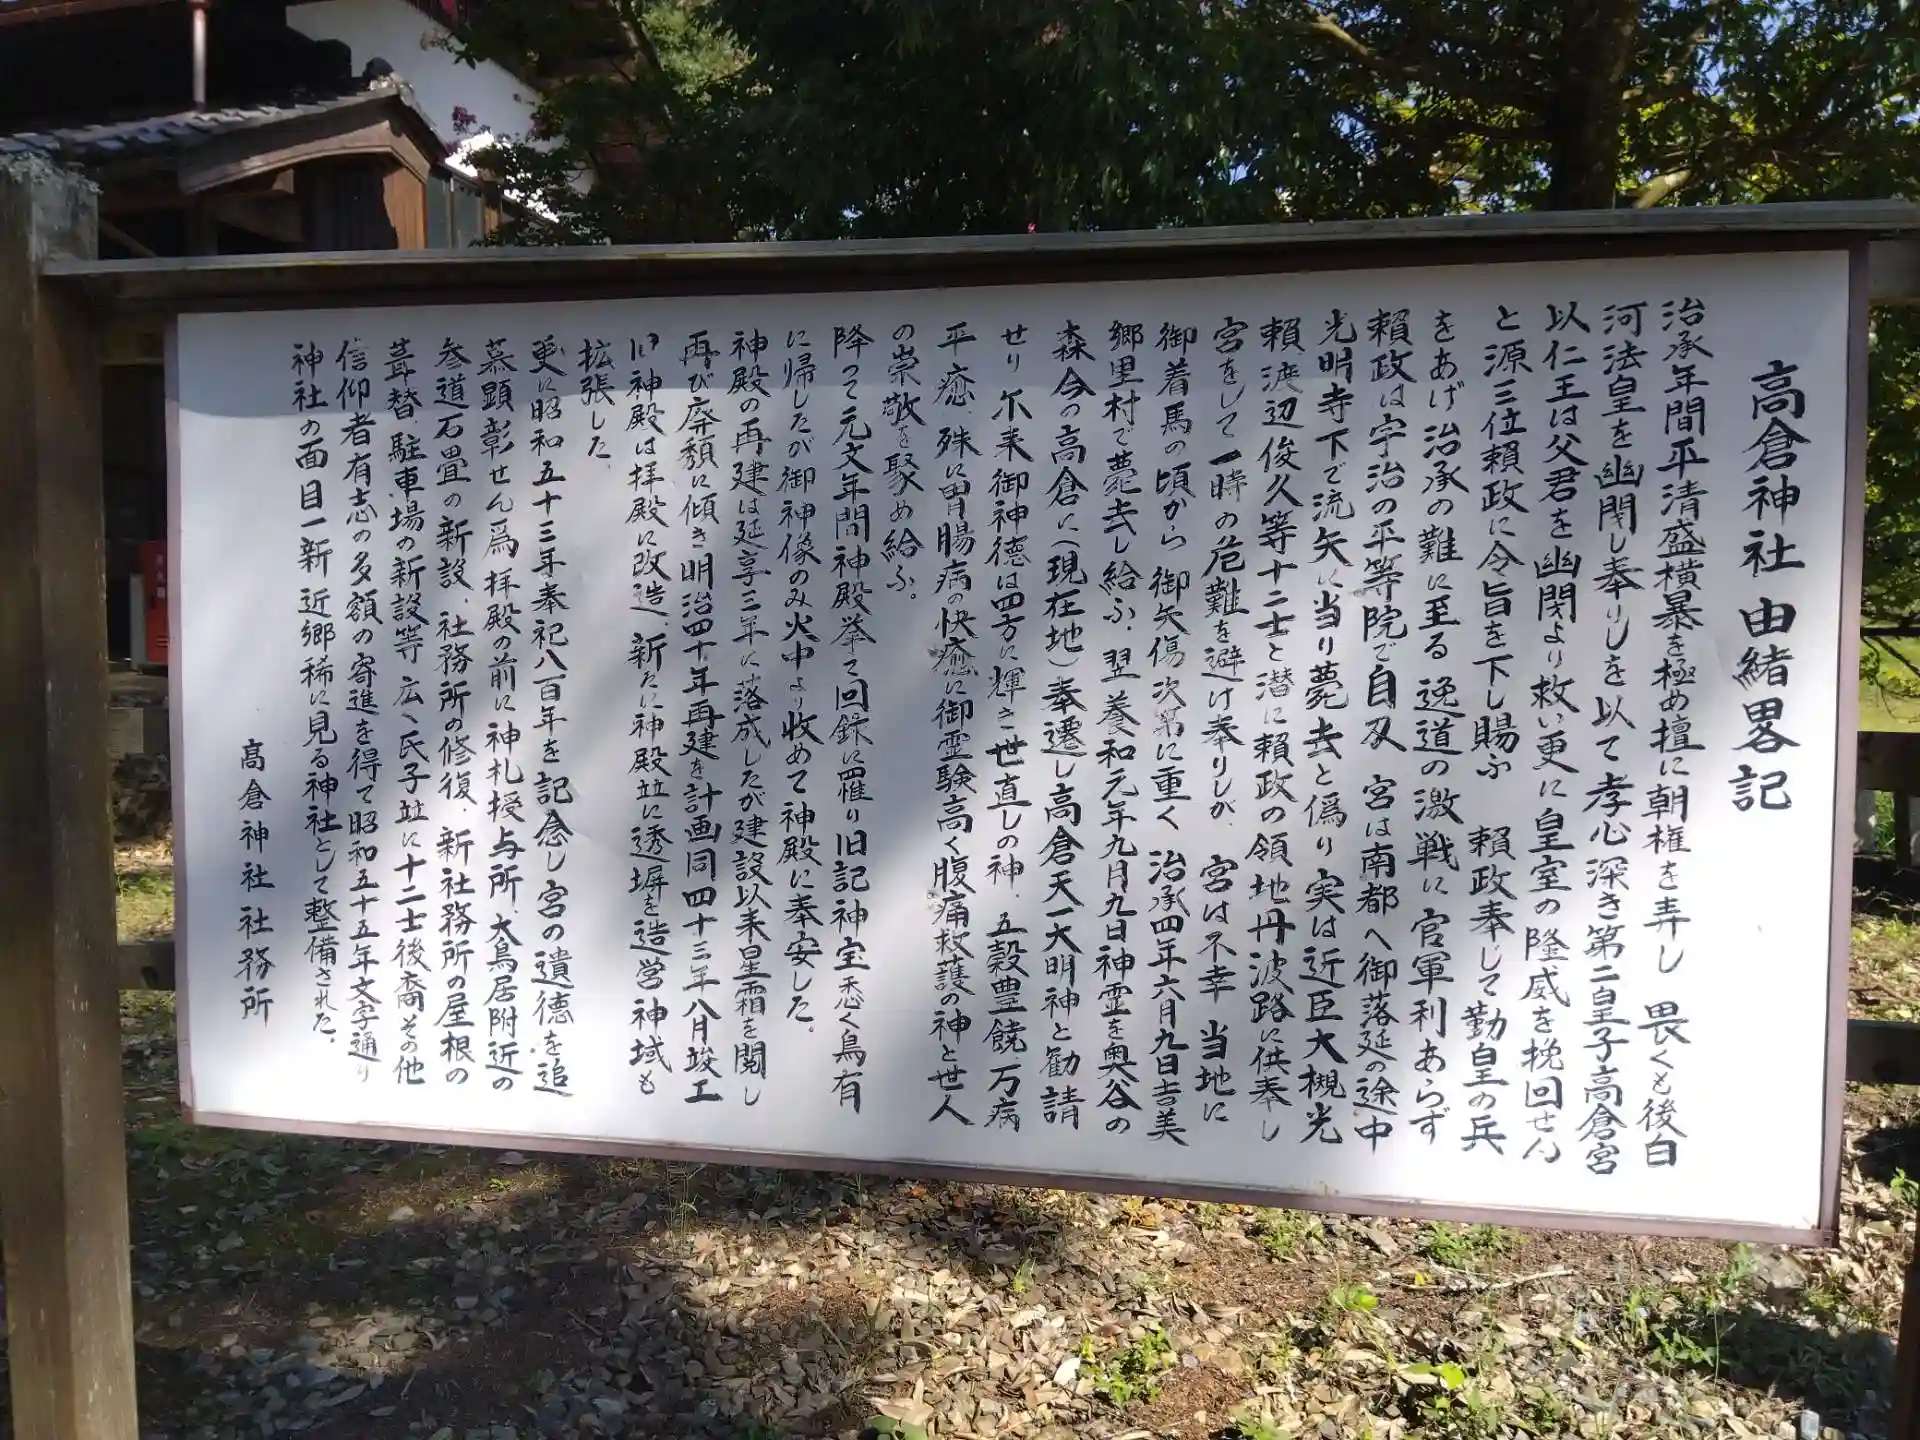 高倉神社由緒畧記
治承年間平清盛横暴を極め擅に朝権を弄し 畏くも後白
河法皇を幽閉し奉りしを以て孝心深き第二皇子高倉宮
以仁王は父君を幽閉より救い更に皇室の隆威を挽回せん
と源三位頼政に令旨を下し賜ふ 頼政奉じて勤皇の兵
をあげ治承の難に至る 逸道の激戦に官軍利あらず
頼政は宇治の平等院で自刃 宮は南都へ御落延の途中
光明寺下で流矢に当り薨去と偽り実は近臣大槻光
頼渡辺俊久等十二士と潜に頼政の領地丹波路に供奉し
宮をして一時の危難を避け奉りしが、宮は不幸 当地に
御着馬の頃から御矢傷次第に重く 治承四年六月九日吉美
郷里村で薨去し給ふ、翌養和元年九月九日神霊を奥谷の
森今の高倉に(現在地)奉遷し高倉天一大明神と勧請
せり 尓来御神徳は四方に輝き世直しの神、五穀豊饒万病
平癒、殊に胃腸病の快癒に御霊験高く腹痛救護の神と世人
の崇敬を聚め給ふ。
降って元文年間神殿挙て回録に罹り旧記神宝悉く烏有
に帰したが御神像のみ火中より收めて神殿に奉安した。
神殿の再建は延享三年に落成したが建設以来星霜を閲し
再び廃頽に傾き明治四十年再建を計画同四十三年八月竣工
旧神殿は拝殿に改造、新たに神殿並に透塀を造営神域も
拡張した、
更に昭和五十三年奉祀八百年を記念し宮の遺徳を追
慕顕彰せん為拝殿の前に神札授与所、大鳥居附近の
参道石畳の新設、社務所の修復、新社務所の屋根の
葺替、駐車場の新設等広く氏子並に十二士後裔その他
信仰者有志の多額の寄進を得て昭和五十五年文字通り
神社の面目一新近郷稀に見る神社として整備された。
高倉神社社務所